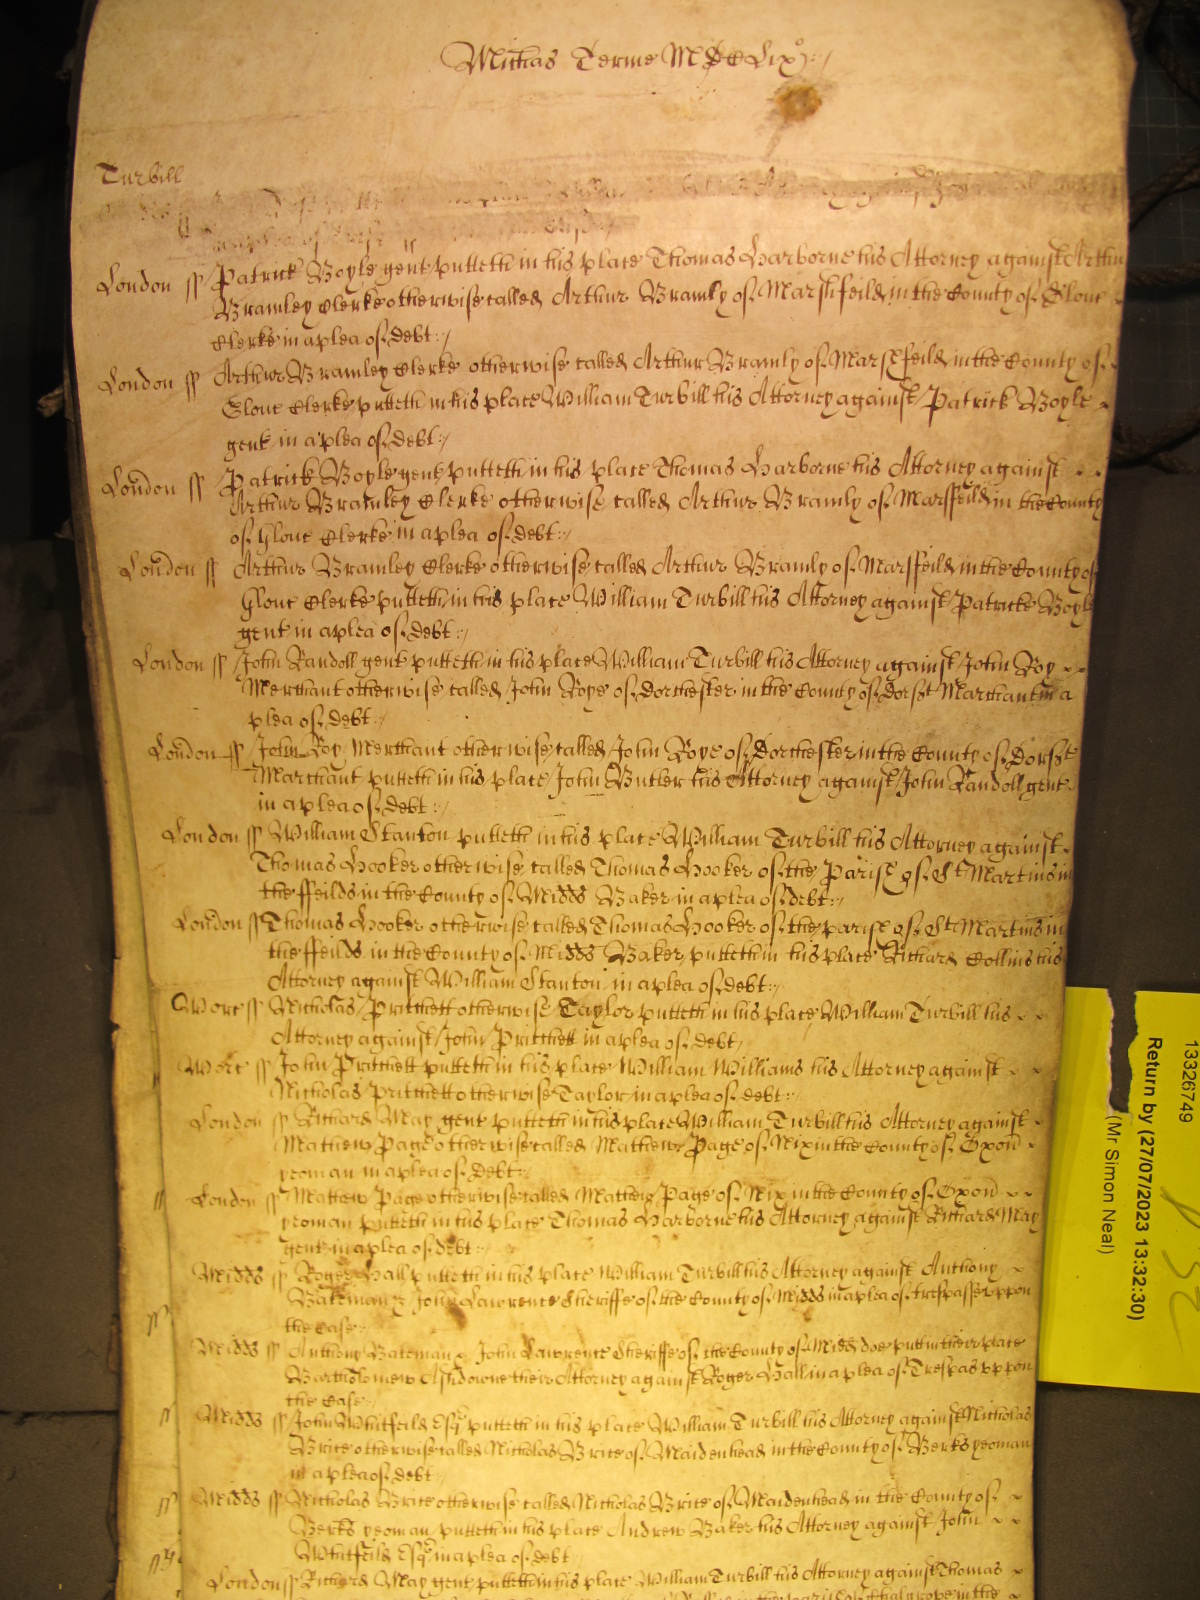 Michas Terme MDCLix°
Turbill
London ss Patrick Boyle gent putteth in his place Thomas Harborne his Attorney against Arthur
Bramley Clerke otherwise called Arthur Bramly of Marshfeild in the County of Glouc
Clerke in a plea of debt
London ss Arthur Bramley Clerke otherwise called Arthur Bramly of Marshfeild in the County of
Glouc Clerke putteth in his place William Turbill his Attorney against Patrick Boyle
gent in a plea of debt
London ss Patrick Boyle gent putteth in his place Thomas Harborne his Attorney against
Arthur Bramley Clerke otherwise called Arthur Bramly of Marsfeild in the County
of Glouc Clerke in a plea of debt
London ss Arthur Bramley Clerke otherwise called Arthur Bramly of Marsfeild in the County of
Glouc Clerke putteth in his place William Turbill his Attorney against Patricke Boyle
gent in a plea of debt
London ss John Randoll gent putteth in his place William Turbill his Attorney against John Roy
Merchant otherwise called John Roye of Dorchester in the County of Dorset Marchant in a
plea of debt
London ss John Roy Merchant otherwise called John Roye of Dorchester in the County of Dorset
Marchant putteth in his place John Butler his Attorney against John Randoll gent
in a plea of debt
London ss William Stanton putteth in his place William Turbill his Attorney against
Thomas Hooker otherwise called Thomas Hooker of the Parish of St Martins in
the ffeilds in the County of Midds Baker in a plea of debt
London ss Thomas Hooker otherwise called Thomas Hooker of the parish of St Martins in
the ffeilds in the County of Midds Baker putteth in his place Richard Collins his
Attorney against William Stanton in a plea of debt
Worc ss Nicholas Pritchett otherwise Taylor putteth in his place William Turbill his
Attorney against John Pritchett in a plea of debt
Worc ss John Pritchett putteth in his place William Williams his Attorney against
Nicholas Pritchett otherwise Taylor in a plea of debt
London ss Richard May gent putteth in his place William Turbill his Attorney against
Mathew Page otherwise called Mathew Page of Nix in the County of Oxon
yeoman in a plea of Debt
London ss Mathew Page otherwise called Mathew Page of Nix in the County of Oxon
yeoman putteth in his place Thomas Harborne his Attorney against Richard May
gent in a plea of debt
Midds ss Roger Hall putteth in his place William Turbill his Attorney against Anthony
Bateman & John Lawrence Sheriffe of the County of Midds in a plea of trespasse uppon
the Case
Midds ss Anthony Bateman & John Lawrence Sheriffe of the County of Midd doe putt in their place
Bartholomew Ashdowne their Attorney against Roger Hall in a plea of Trespas uppon
the Case
Midds ss John Whitfeild Esqr putteth in his place William Turbill his Attorney against Nicholas
Brice otherwise called Nicholas Brice of Maidenhead in the County of Berks yeoman
in a plea of debt
Midds ss Nicholas Brice otherwise called Nicholas Brice of Maidenhead in the County of
Berks yeoman putteth in his place Andrew Baker his Attorney against John
Whitfeild Esqr in a plea of debt
London ss Richard May gent putteth in his place William Turbill his Attorney against Thomas
in the
13326749
Return by (27/07/2023 13:32:30)
(Mr Simon Neal)